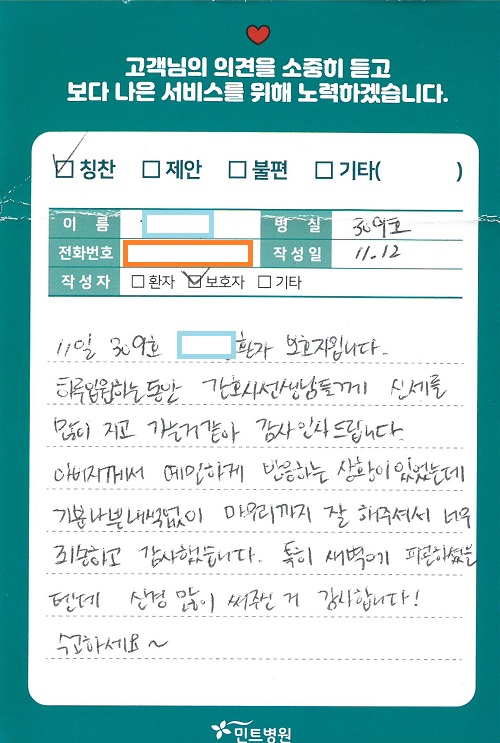 고객님의 의견을 소중히 듣고
보다 나은 서비스를 위해 노력하겠습니다.
칭찬 제안 불편 기타( )
이 름 병 실 309호
전화번호 작성일 11.12
작성자 환자 보호자 기타
11일 309호 환자 보호자입니다.
하루입원하는동안 간호사선생님들께 신세를
많이 지고 가는거같아 감사인사드립니다.
아버지께서 예민하게 반응하는 상황이있었는데
기분나쁜내색없이 마무리까지 잘 해주셔서 너무
죄송하고 감사했습니다. 특히 새벽에 피곤하셨을
텐데 신경 많이 써주신 거 감사합니다!
수고하세요~
민트병원